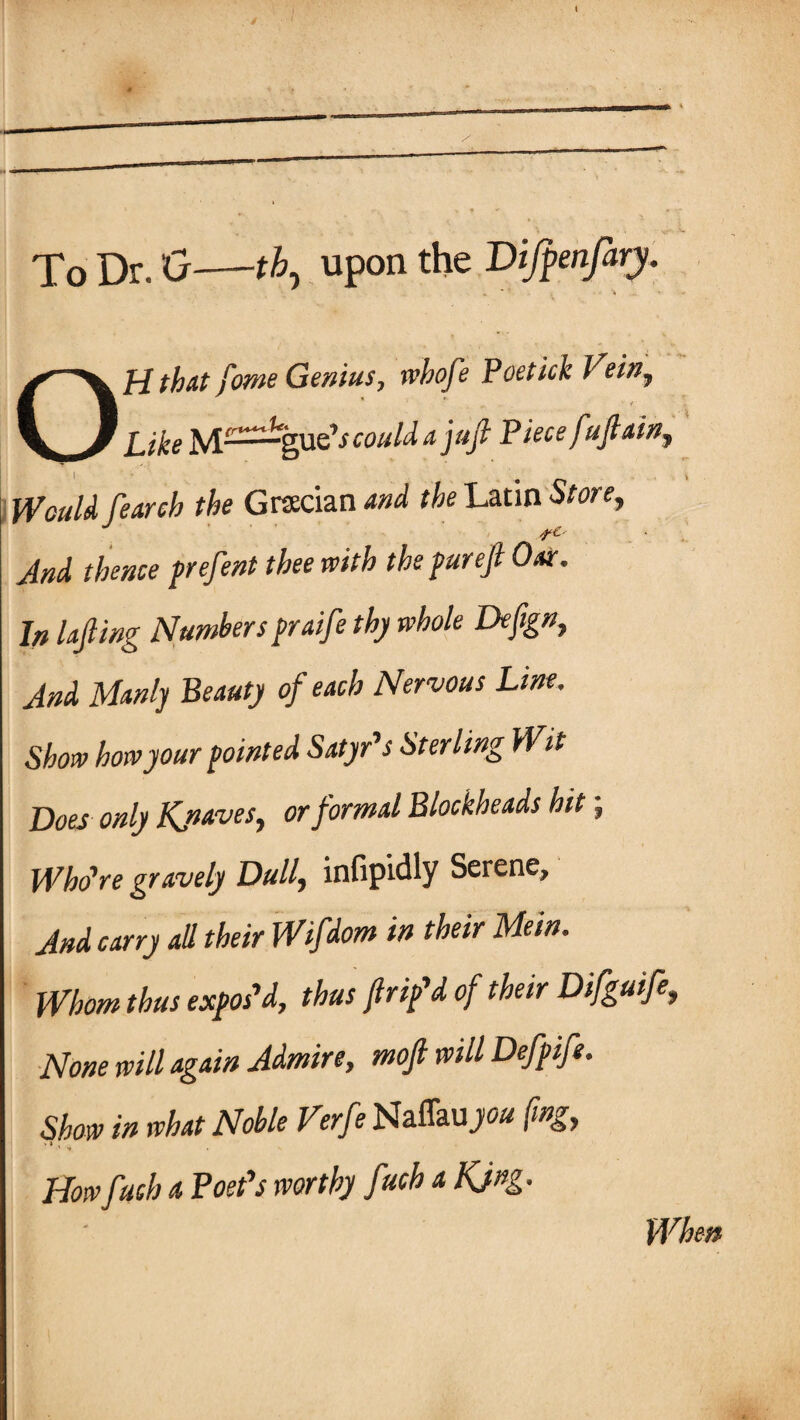 To Dr. G——th, upon the Diſpenſary.
OH that ſome Genius, whoſe Poetick Vein,
Like M——gue's could a juſt Piece ſuſtain,
Would ſearch the Græcian and the Latin Store,
And thence preſent thee with the pureſt Oar.
In laſting Numbers praiſe thy whole Deſign,
And Manly Beauty of each Nervous Line.
Show how your pointed Satyr's Sterling Wit
Does only Knaves, or formal Blockheads hit;
Who're gravely Dull, inſipidly Serene,
And carry all their Wiſdom in their Mein.
Whom thus expos'd, thus ſtrip'd of their Diſguiſe,
None will again Admire, moſt will Deſpiſe.
Show in what Noble Verſe Naſſau you ſing,
How ſuch a Poet's worthy ſuch a King.
When